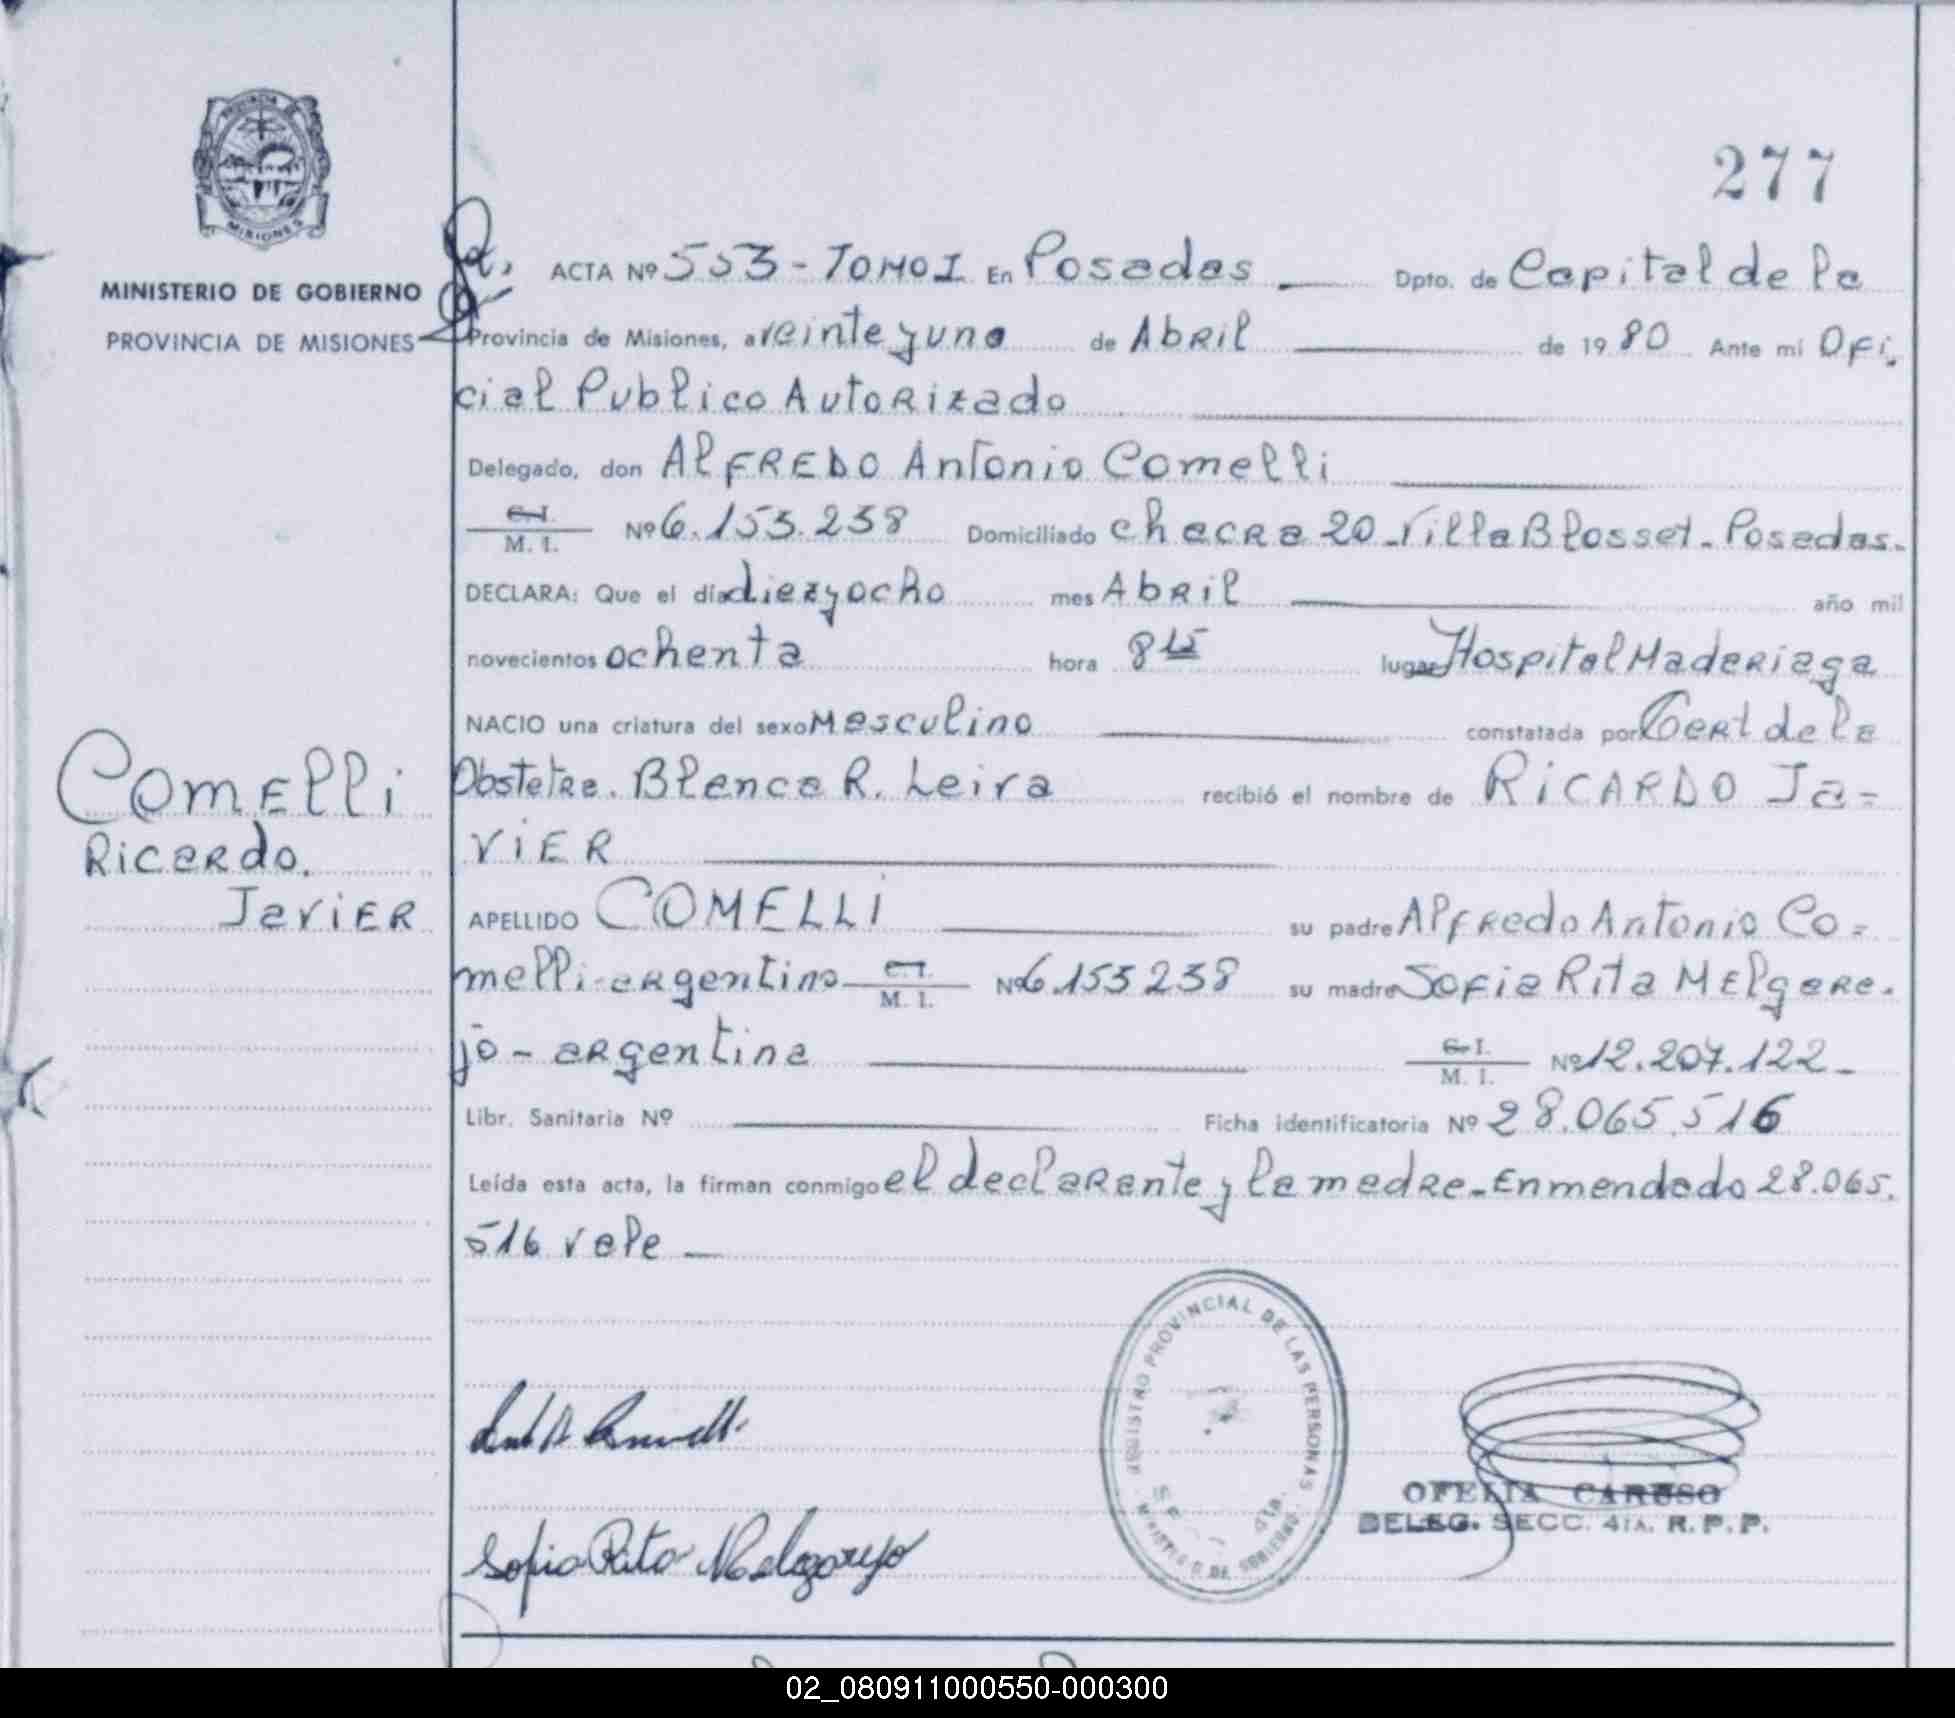 277
MINISTERIO DE GOBIERNO
PROVINCIA DE MISIONES
ACTA Nº 553 - TOMO I En Posadas Dpto. de Capital de la
Provincia de Misiones, a veinte y uno de Abril de 1980 Ante mi Ofi-
cial Publico Autorizado
Delegado, don Alfredo Antonio Comelli
C. I.
M. I. Nº 6.153.238 Domiciliado chacra 20 - Villa Blosset - Posadas -
DECLARA: Que el día diez y ocho mes Abril año mil
novecientos ochenta hora 8 15 lugar Hospital Madariaga
NACIO una criatura del sexo Masculino constatada por Cert de la
Obstetra. Blanca R. Leira recibió el nombre de RICARDO JA=
VIER
APELLIDO COMELLI su padre Alfredo Antonio Co=
melli - argentino C. I. M. I. Nº 6.153238 su madre Sofia Rita Melgare-
jo - argentina C. I. M. I. Nº 12.207.122 -
Libr. Sanitaria Nº Ficha identificatoria Nº 28.065.516
Leída esta acta, la firman conmigo el declarante y la madre - Enmendado 28.065.
516 vale
Comelli
Ricardo.
Javier
Sofia Rita Melgarejo
REGISTRO PROVINCIAL DE LAS PERSONAS
MINISTERIO DE GOBIERNO
4ta.
OFELIA CARUSO
DELEG. SECC. 4TA. R. P. P.
MISIONES
02_080911000550-000300